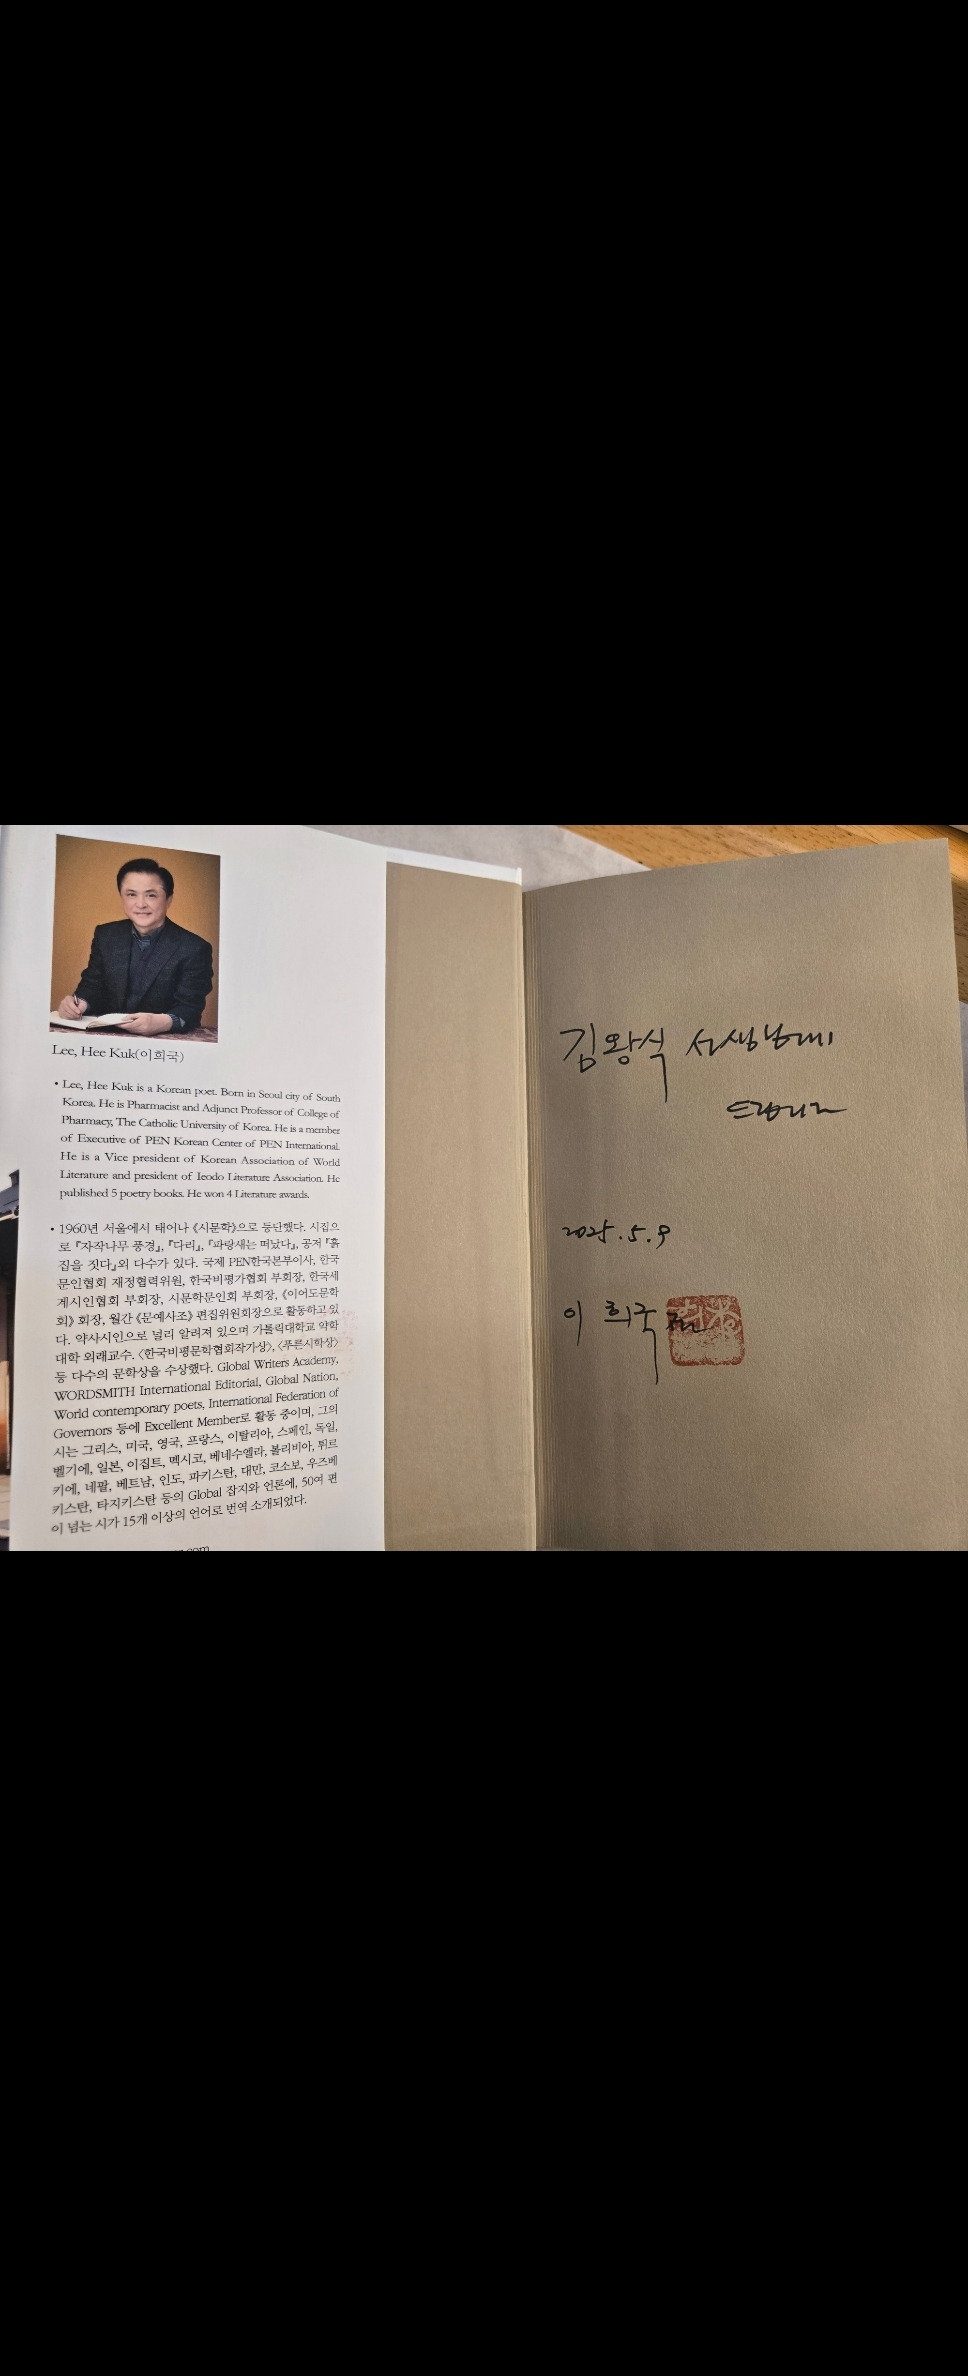 Lee, Hee Kuk(이희국)
• Lee, Hee Kuk is a Korean poet. Born in Seoul city of South
Korea. He is Pharmacist and Adjunct Professor of College of
Pharmacy, The Catholic University of Korea. He is a member
of Executive of PEN Korean Center of PEN International.
He is a Vice president of Korean Association of World
Literature and president of Ieodo Literature Association. He
published 5 poetry books. He won 4 Literature awards.
• 1960년 서울에서 태어나 《시문학》으로 등단했다. 시집으
로 『자작나무 풍경』, 『다리』, 『파랑새는 떠났다』, 공저 『흙
집을 짓다』외 다수가 있다. 국제 PEN한국본부이사, 한국
문인협회 재정협력위원, 한국비평가협회 부회장, 한국세
계시인협회 부회장, 시문학문인회 부회장, 《이어도문학
회》 회장, 월간 《문예사조》 편집위원회장으로 활동하고 있
다. 약사시인으로 널리 알려져 있으며 가톨릭대학교 약학
대학 외래교수. 〈한국비평문학협회작가상〉, 〈푸른시학상〉
등 다수의 문학상을 수상했다. Global Writers Academy,
WORDSMITH International Editorial, Global Nation,
World contemporary poets, International Federation of
Governors 등에 Excellent Member로 활동 중이며, 그의
시는 그리스, 미국, 영국, 프랑스, 이탈리아, 스페인, 독일,
벨기에, 일본, 이집트, 멕시코, 베네수엘라, 볼리비아, 튀르
키에, 네팔, 베트남, 인도, 파키스탄, 대만, 코소보, 우즈베
키스탄, 타지키스탄 등의 Global 잡지와 언론에, 50여 편
이 넘는 시가 15개 이상의 언어로 번역 소개되었다.
김왕식 선생님께
드립니다
2025.5.9
이희국